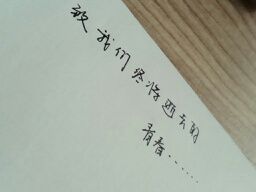 致我们终将逝去的
青春……